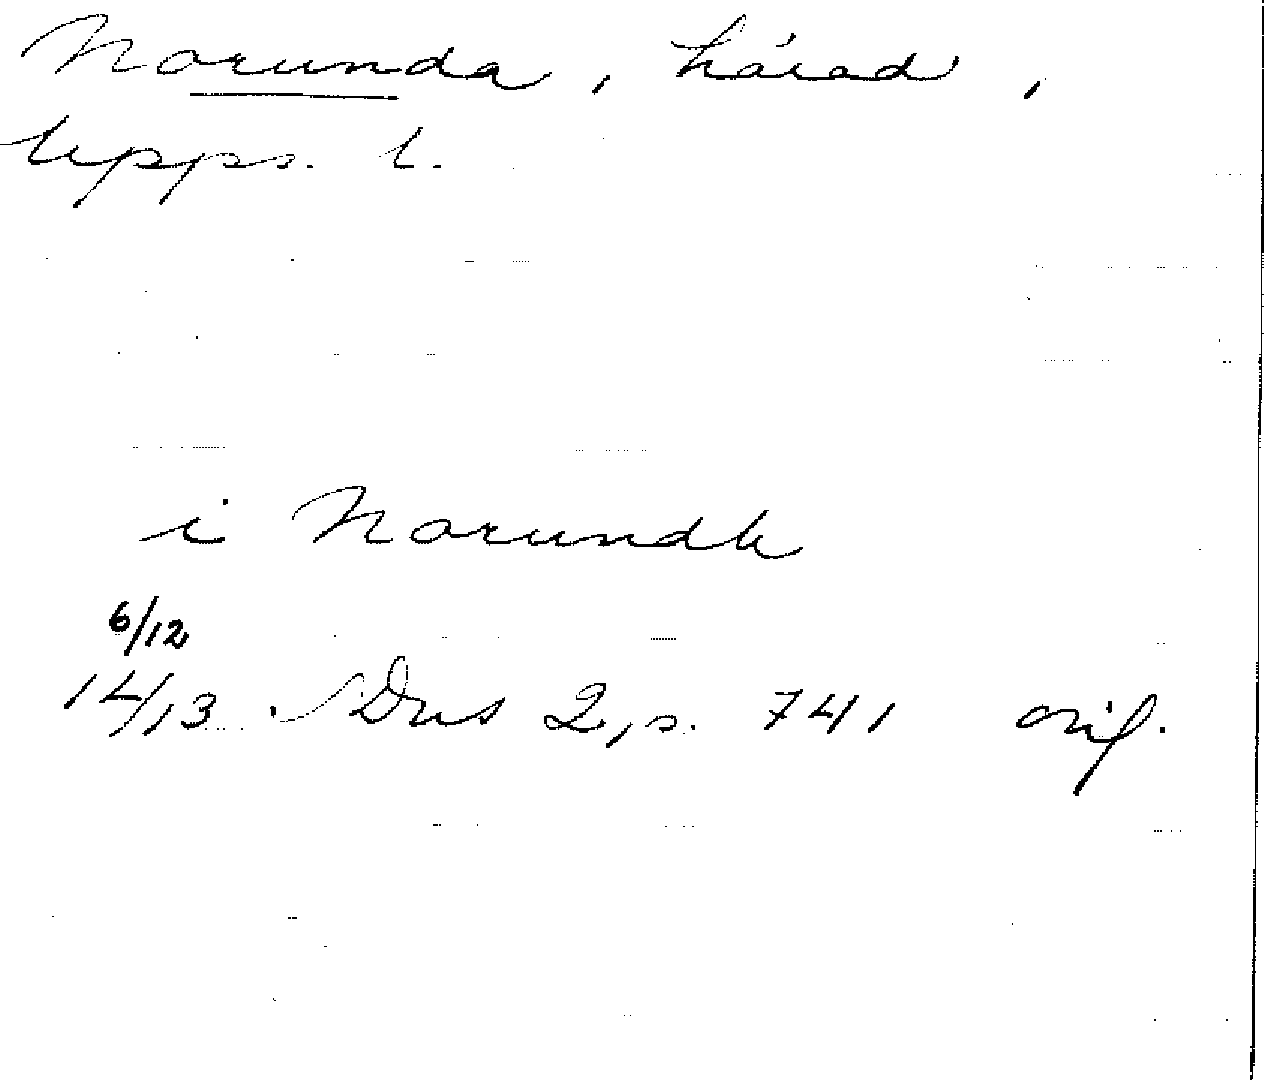 Norunda, härad,
Upps. l.
i Norundh
6/12
14/13 SDns 2, s. 741 orig.